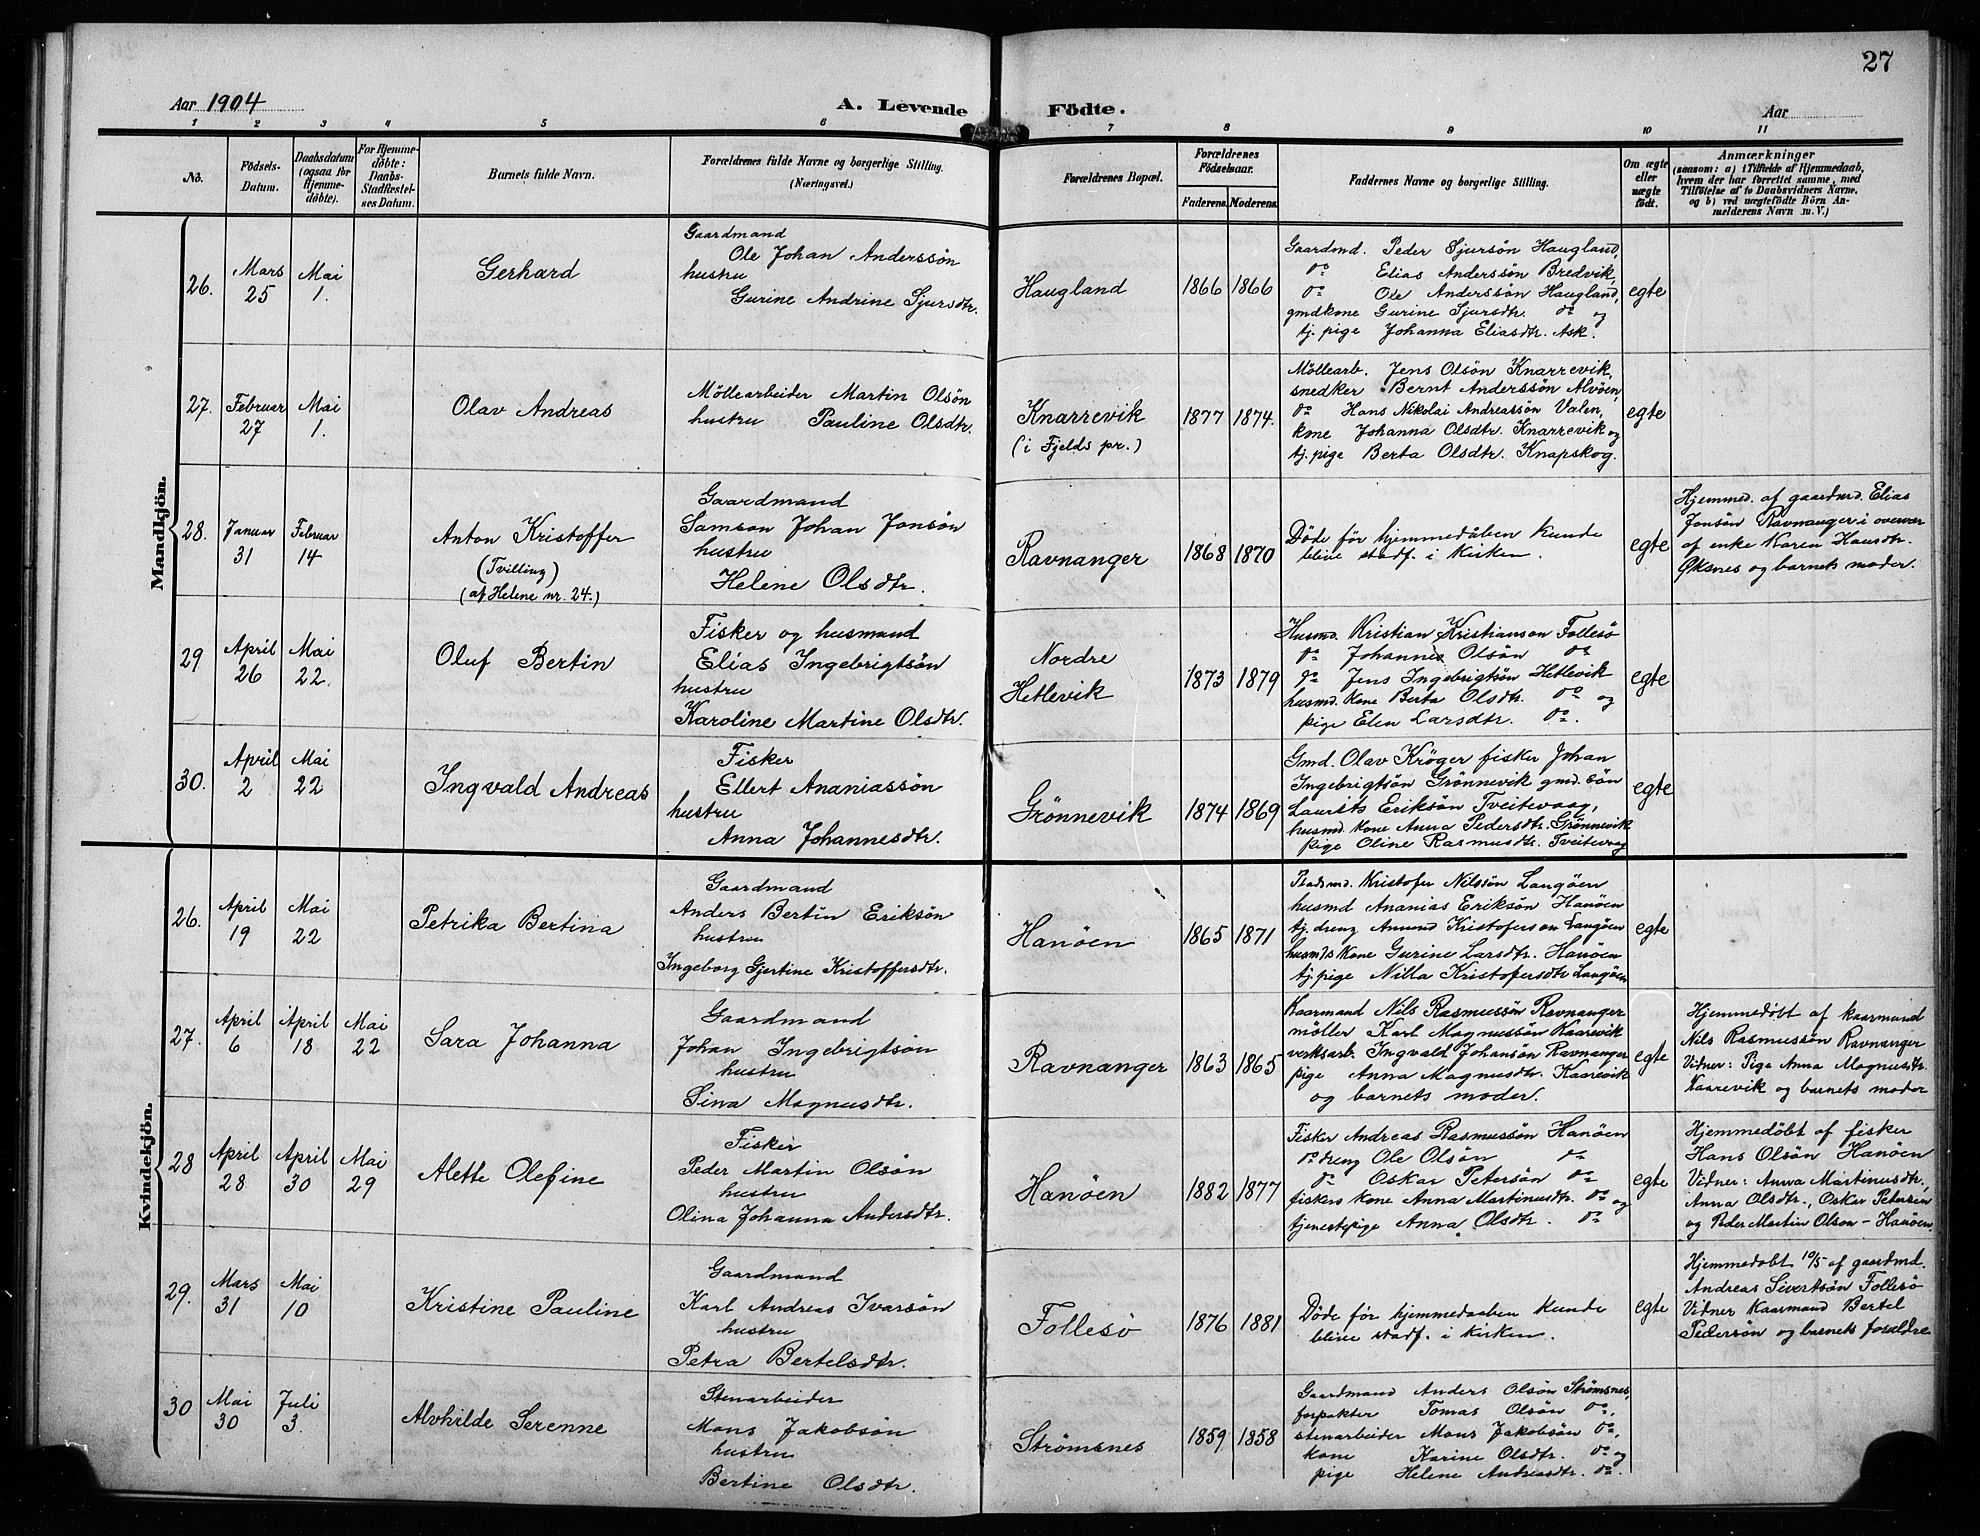 27
Aar 1904
A. Levende Födte.
Aar
1 2 3 4 5 6 7 8 9 10 11
No.
Födsels-
Datum.
Daabsdatum
(ogsaa for
Hjemme-
døbte).
For Hjemme-
døbte:
Daabs-
Stadfæstel-
ses Datum.
Barnets fulde Navn.
Forældrenes fulde Navne og borgerlige Stilling.
(Næringsvei.)
Forældrenes Bopæl.
Forældrenes
Födselsaar.
Faderens.
Moderens.
Faddernes Navne og borgerlige Stilling.
Om ægte
eller
uægte
født.
Anmærkninger
(saasom: a) i Tilfælde af Hjemmedaab,
hvem der har forrettet samme, med
Tilføielse af to Daabsvidners Navne,
og b) ved uægtefødte Börn An-
melderens Navn m. V.)
Mandkjön.
26.
Mars
25
Mai
1.
Gerhard
Gaardmand
Ole Johan Anderssön
hustru
Gurine Andrine Sjursdtr.
Haugland
1866 1866
Gaardmd. Peder Sjursön Haugland,
do Elias Anderssön Bredvik,
do Ole Anderssön Haugland,
gmdkone Gurine Sjursdtr. do og
tj. pige Johanna Eliasdtr. Ask.
egte
27.
Februar
27
Mai
1.
Olav Andreas
Möllearbeider Martin Olsön
hustru Pauline Olsdtr.
Knarrevik
(i Fjelds pr.)
1877 1874.
Möllearb. Jens Olsön Knarrevik,
snedker Bernt Anderssön Alvöen,
do Hans Nikolai Andreassön Valen,
kone Johanna Olsdtr. Knarrevik og
tj. pige Berta Olsdtr. Knapskog.
egte
28.
Januar
31
Februar
14
Anton Kristoffer
(Tvilling)
(af Helene nr. 24.)
Gaardmand
Samson Johan Jonsön
hustru
Helene Olsdtr.
Ravnanger
1868 1870
Døde før hjemmedåben kunde
blive stadf. i kirken.
egte
Hjemmed. af gaardmd. Elias
Jonsön Ravnanger i overvær
af enke Karen Hansdtr.
Øksnes og barnets moder.
29
April
26
Mai
22.
Oluf Bertin
Fisker og husmand
Elias Ingebrigtsön
hustru
Karoline Martine Olsdtr.
Nordre
Hetlevik
1873 1879
Husmd. Kristian Kristianson Follesö
do Johannes Olsön do
do Jens Ingebrigtsön Hetlevik
husmd. kone Berta Olsdtr. do og
pige Elen Larsdtr. do.
egte
30.
April
2
Mai
22
Ingvald Andreas
Fisker
Ellert Ananiassön
hustru
Anna Johannesdtr.
Grönnevik
1874 1869
Gmd. Olav Kröger fisker Johan
Ingebrigtsön Grönnevik gmd. sön
Laurits Eriksön Tveitevaag,
husmd. kone Anna Pedersdtr. Grönnevik
pige Oline Rasmusdtr. Tveitevaag
egte
Kvindekjön.
26.
April
19
Mai
22
Petrika Bertina
Gaardmand
Anders Bertin Eriksön
hustru
Ingeborg Gjertine Kristoffersdtr.
Hanöen
1865 1871
Pladsmd. Kristofer Nilssön Langöen
husmd Ananias Eriksön Hanöen
tj. dreng Amund Kristoferson Langöen
husmds kone Gurine Larsdtr. Hanöen
tj. pige Nilla Kristofersdtr Langöen
egte
27.
April
6
April
18
Mai
22
Sara Johanna
Gaardmand
Johan Ingebrigtsön
hustru
Sina Magnusdtr.
Ravnanger
1863 1865
Kaarmand Nils Rasmussön Ravnanger
möller Karl Magnussön Kaarevik
verksarb. Ingvald Johansön Ravnanger
pige Anna Magnusdtr. Kaarevik
og barnets moder.
egte
Hjemmedøbt af kaarmand
Nils Rasmussön Ravnanger
Vidner: Pige Anna Magnusdtr.
Kaarevik og barnets moder
28
April
28
April
30
Mai
29
Alette Olefine
Fisker
Peder Martin Olsön
hustru
Olina Johanna Andersdtr.
Hanöen
1882 1877
Fisker Andreas Rasmussön Hanöen
do dreng Ole Olsön do
do Oskar Petersön do
fiskers kone Anna Martinusdtr. do og
tjenestepige Anna Olsdtr. do
egte
Hjemmedöbt af fisker
Hans Olsön Hanöen
Vidner: Anna Martinusdtr.,
Anna Olsdtr., Oskar Petersön
og Peder Martin Olson - Hanöen.
29.
Mars
31
Mai
10
Kristine Pauline
Gaardmand
Karl Andreas Ivarsön
hustru
Petra Bertelsdtr.
Follesö
1876 1881
Døde før hjemmedaaben kunde
blive stadf. i kirken.
egte
Hjemmedøbt 10/5 af gaardmd.
Andreas Sivertsön Follesö
Vidner Kaarmand Bertel
Pedersön og barnets forældre
30
Mai
30
Juli
3.
Alvhilde Serenne
Stenarbeider
Mons Jakobsön
hustru
Bertine Olsdtr.
Strömsnes
1859 1858
Gaardmand Anders Olsön Strömsnes,
forpakter Tomas Olsön do,
stenarbeider Mons Jakobsön do,
kone Karine Olsdtr. do og
pige Helene Andreasdtr. do.